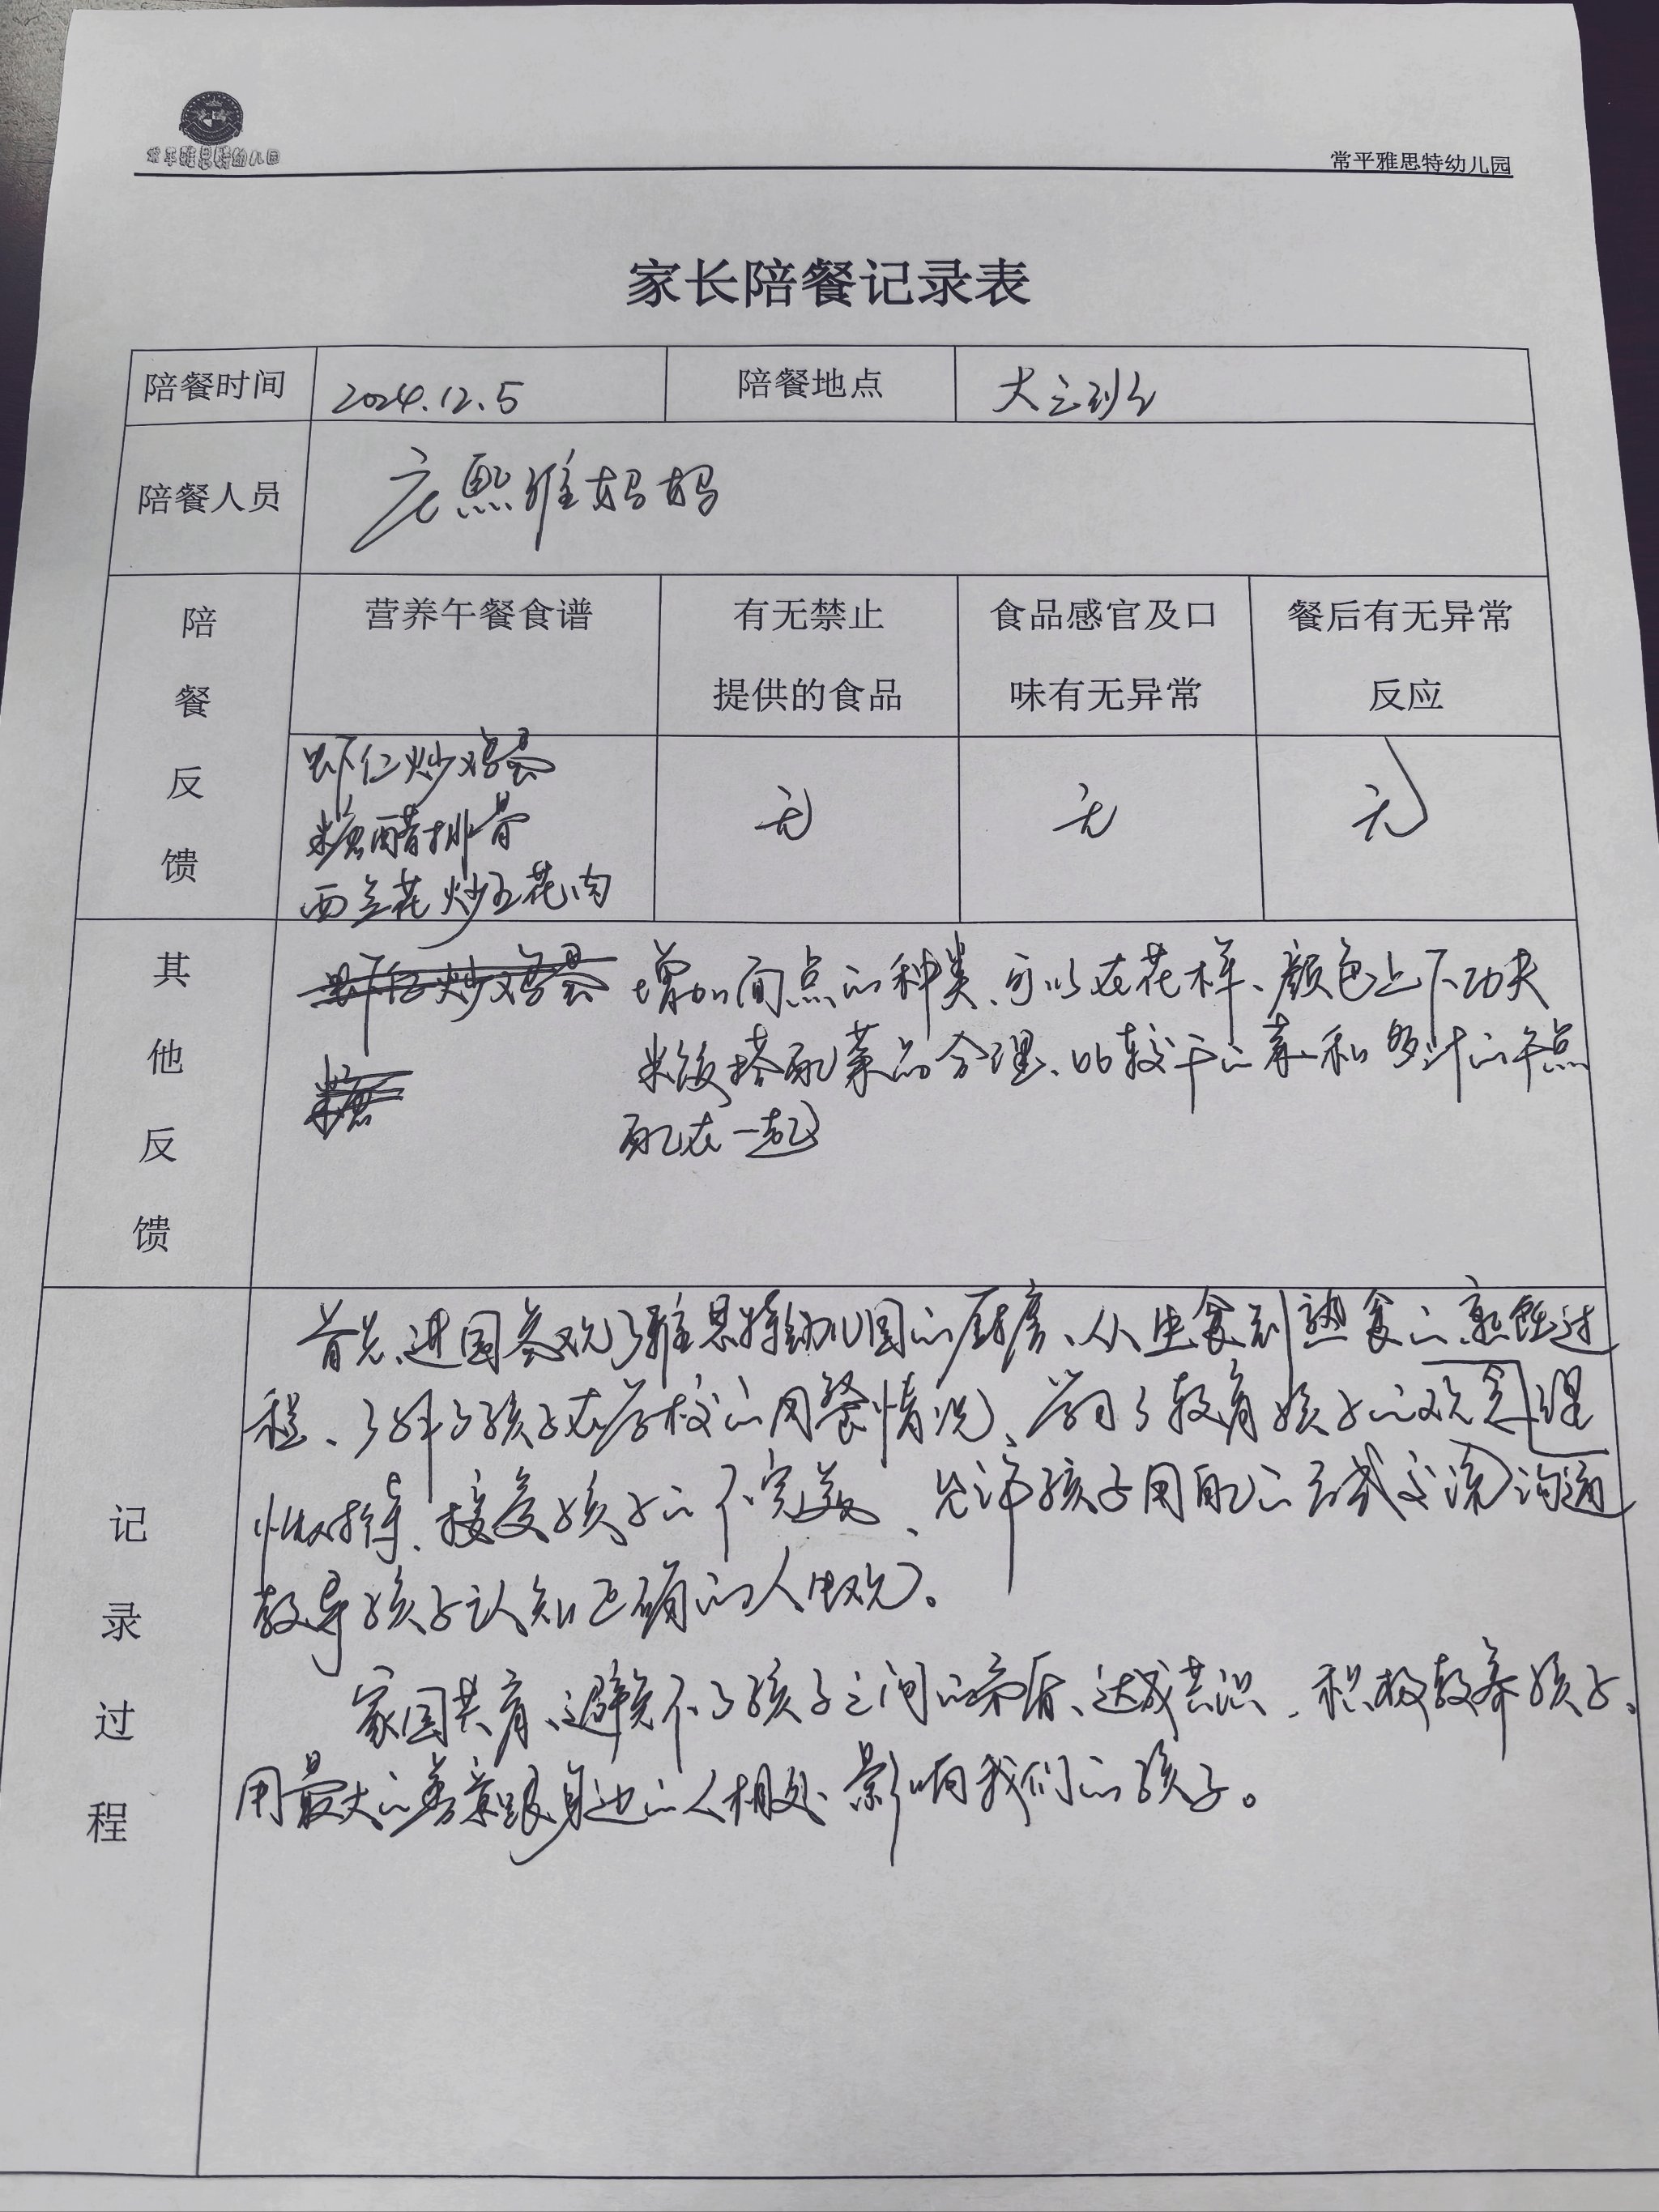 常平雅思特幼儿园
常平雅思特幼儿园
家长陪餐记录表
陪餐时间 2024.12.5 陪餐地点 大三班
陪餐人员 熙雅妈妈
陪餐反馈
营养午餐食谱 有无禁止提供的食品 食品感官及口味有无异常 餐后有无异常反应
虾仁炒鸡蛋 无 无 无
糖醋排骨
西兰花炒五花肉
其他反馈
虾仁炒鸡蛋 增加面点的种类、可以在花样、颜色上下功夫
糖 米饭搭配菜品合理、比较干的菜和多汁的
配在一起
记录过程
首先、进园参观了雅思特幼儿园的厨房、从生食到熟食的过
程、了解了孩子在学校的用餐情况、学习了教育孩子的观念、理
性对待、接受孩子的不完美、允许孩子用自己的方式交流沟通
教导孩子认知正确的人生观。
家园共育、避免不了孩子之间的矛盾、达成共识、积极教养孩子。
用最大的善意跟身边的人相处、影响我们的孩子。